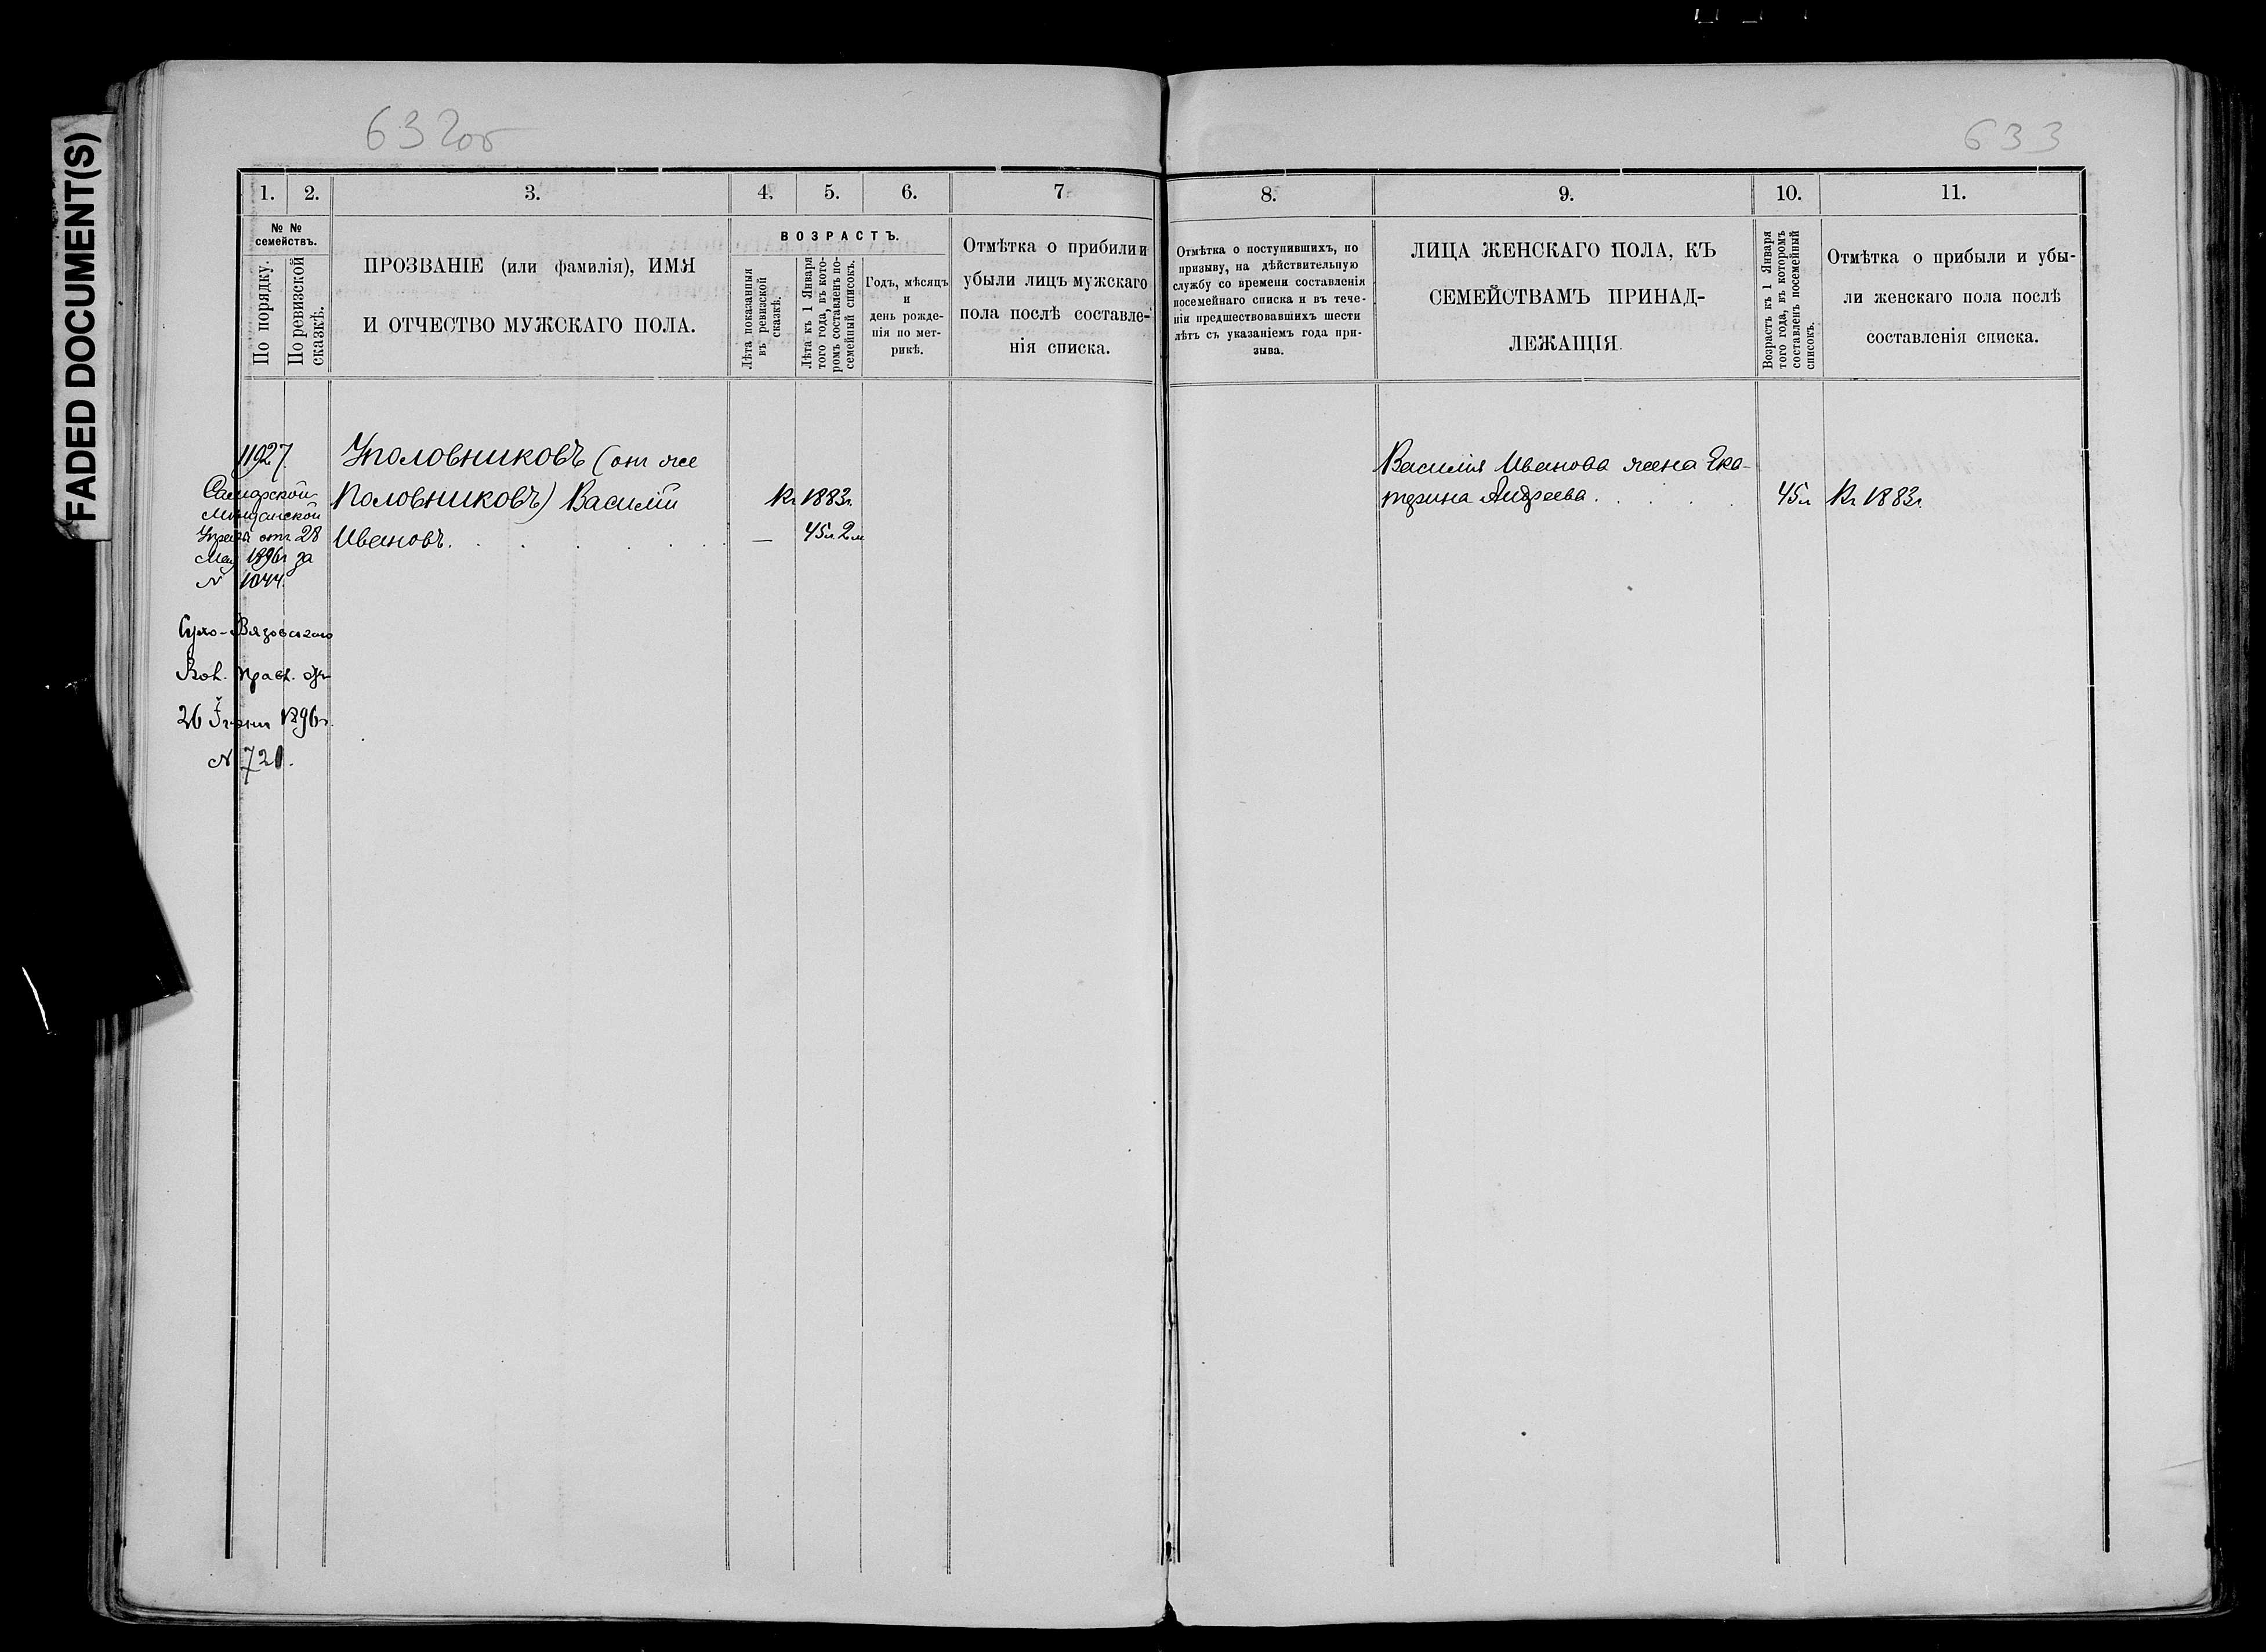 FADED DOCUMENT(S)
632об
633
1.
2.
3.
4.
5.
6.
7.
8.
9.
10.
11.
№ №
семействъ.
По порядку.
По ревизской
сказкѣ.
ПРОЗВАНІЕ (или фамилія), ИМЯ
И ОТЧЕСТВО МУЖСКАГО ПОЛА.
ВОЗРАСТЪ.
Лѣта показанныя
въ ревизской
сказкѣ.
Лѣта къ 1 Января
того года, въ кото-
ромъ составленъ по-
семейный списокъ.
Годъ, мѣсяцъ
и
день рожде-
нія по мет-
рикѣ.
Отмѣтка о прибыли и
убыли лицъ мужскаго
пола послѣ составле-
нія списка.
Отмѣтка о поступившихъ, по
призыву, на дѣйствительную
службу со времени составленія
посемейнаго списка и въ тече-
ніи предшествовавшихъ шести
лѣтъ съ указаніемъ года при-
зыва.
ЛИЦА ЖЕНСКАГО ПОЛА, КЪ
СЕМЕЙСТВАМЪ ПРИНАД-
ЛЕЖАЩІЯ.
Возрастъ къ 1 Января
того года, въ которомъ
составленъ посемейный
списокъ.
Отмѣтка о прибыли и убы-
ли женскаго пола послѣ
составленія списка.
11927
Самарской
Мѣщанской
Управы отъ 28
Мая 1896г за
N 1044.
Сухо-Вязовскаго
Вол. Правл. отъ
26 Іюня 1896г.
N 721.
Уполовниковъ (онъ же
Половниковъ) Василій
Ивановъ.
Къ 1883г.
— 45л 2м
Василія Иванова жена Ека-
терина Андреева
45л
Къ 1883г.